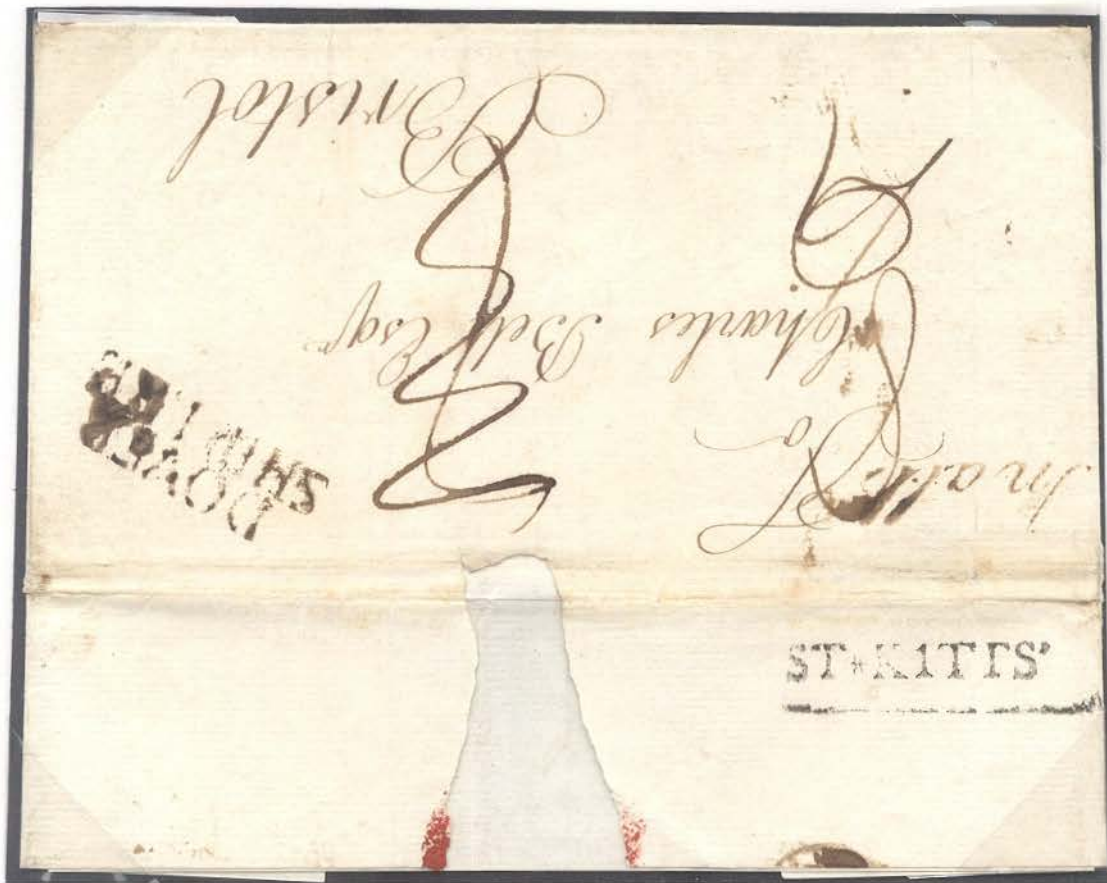 To
Charles Bell Esqr
Bristol
DOVER
SHIP LRE
ST*KITTS